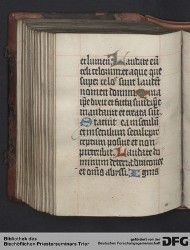 et lumen Laudate eu
celi celorum et aque que
super celos sunt laudent
nomen domini Quia
ipse dixit et facta sunt ipse
mandauit et creata sunt
Statuit ea in eternum
et in seculum seculi pre
ceptum posuit et non
preteribit Laudate do
minum de terra dracones
et omnes abyssi Ignis
Bibliothek des
Bischöflichen Priesterseminars Trier
gefördert von der
DFG
Deutschen Forschungsgemeinschaft